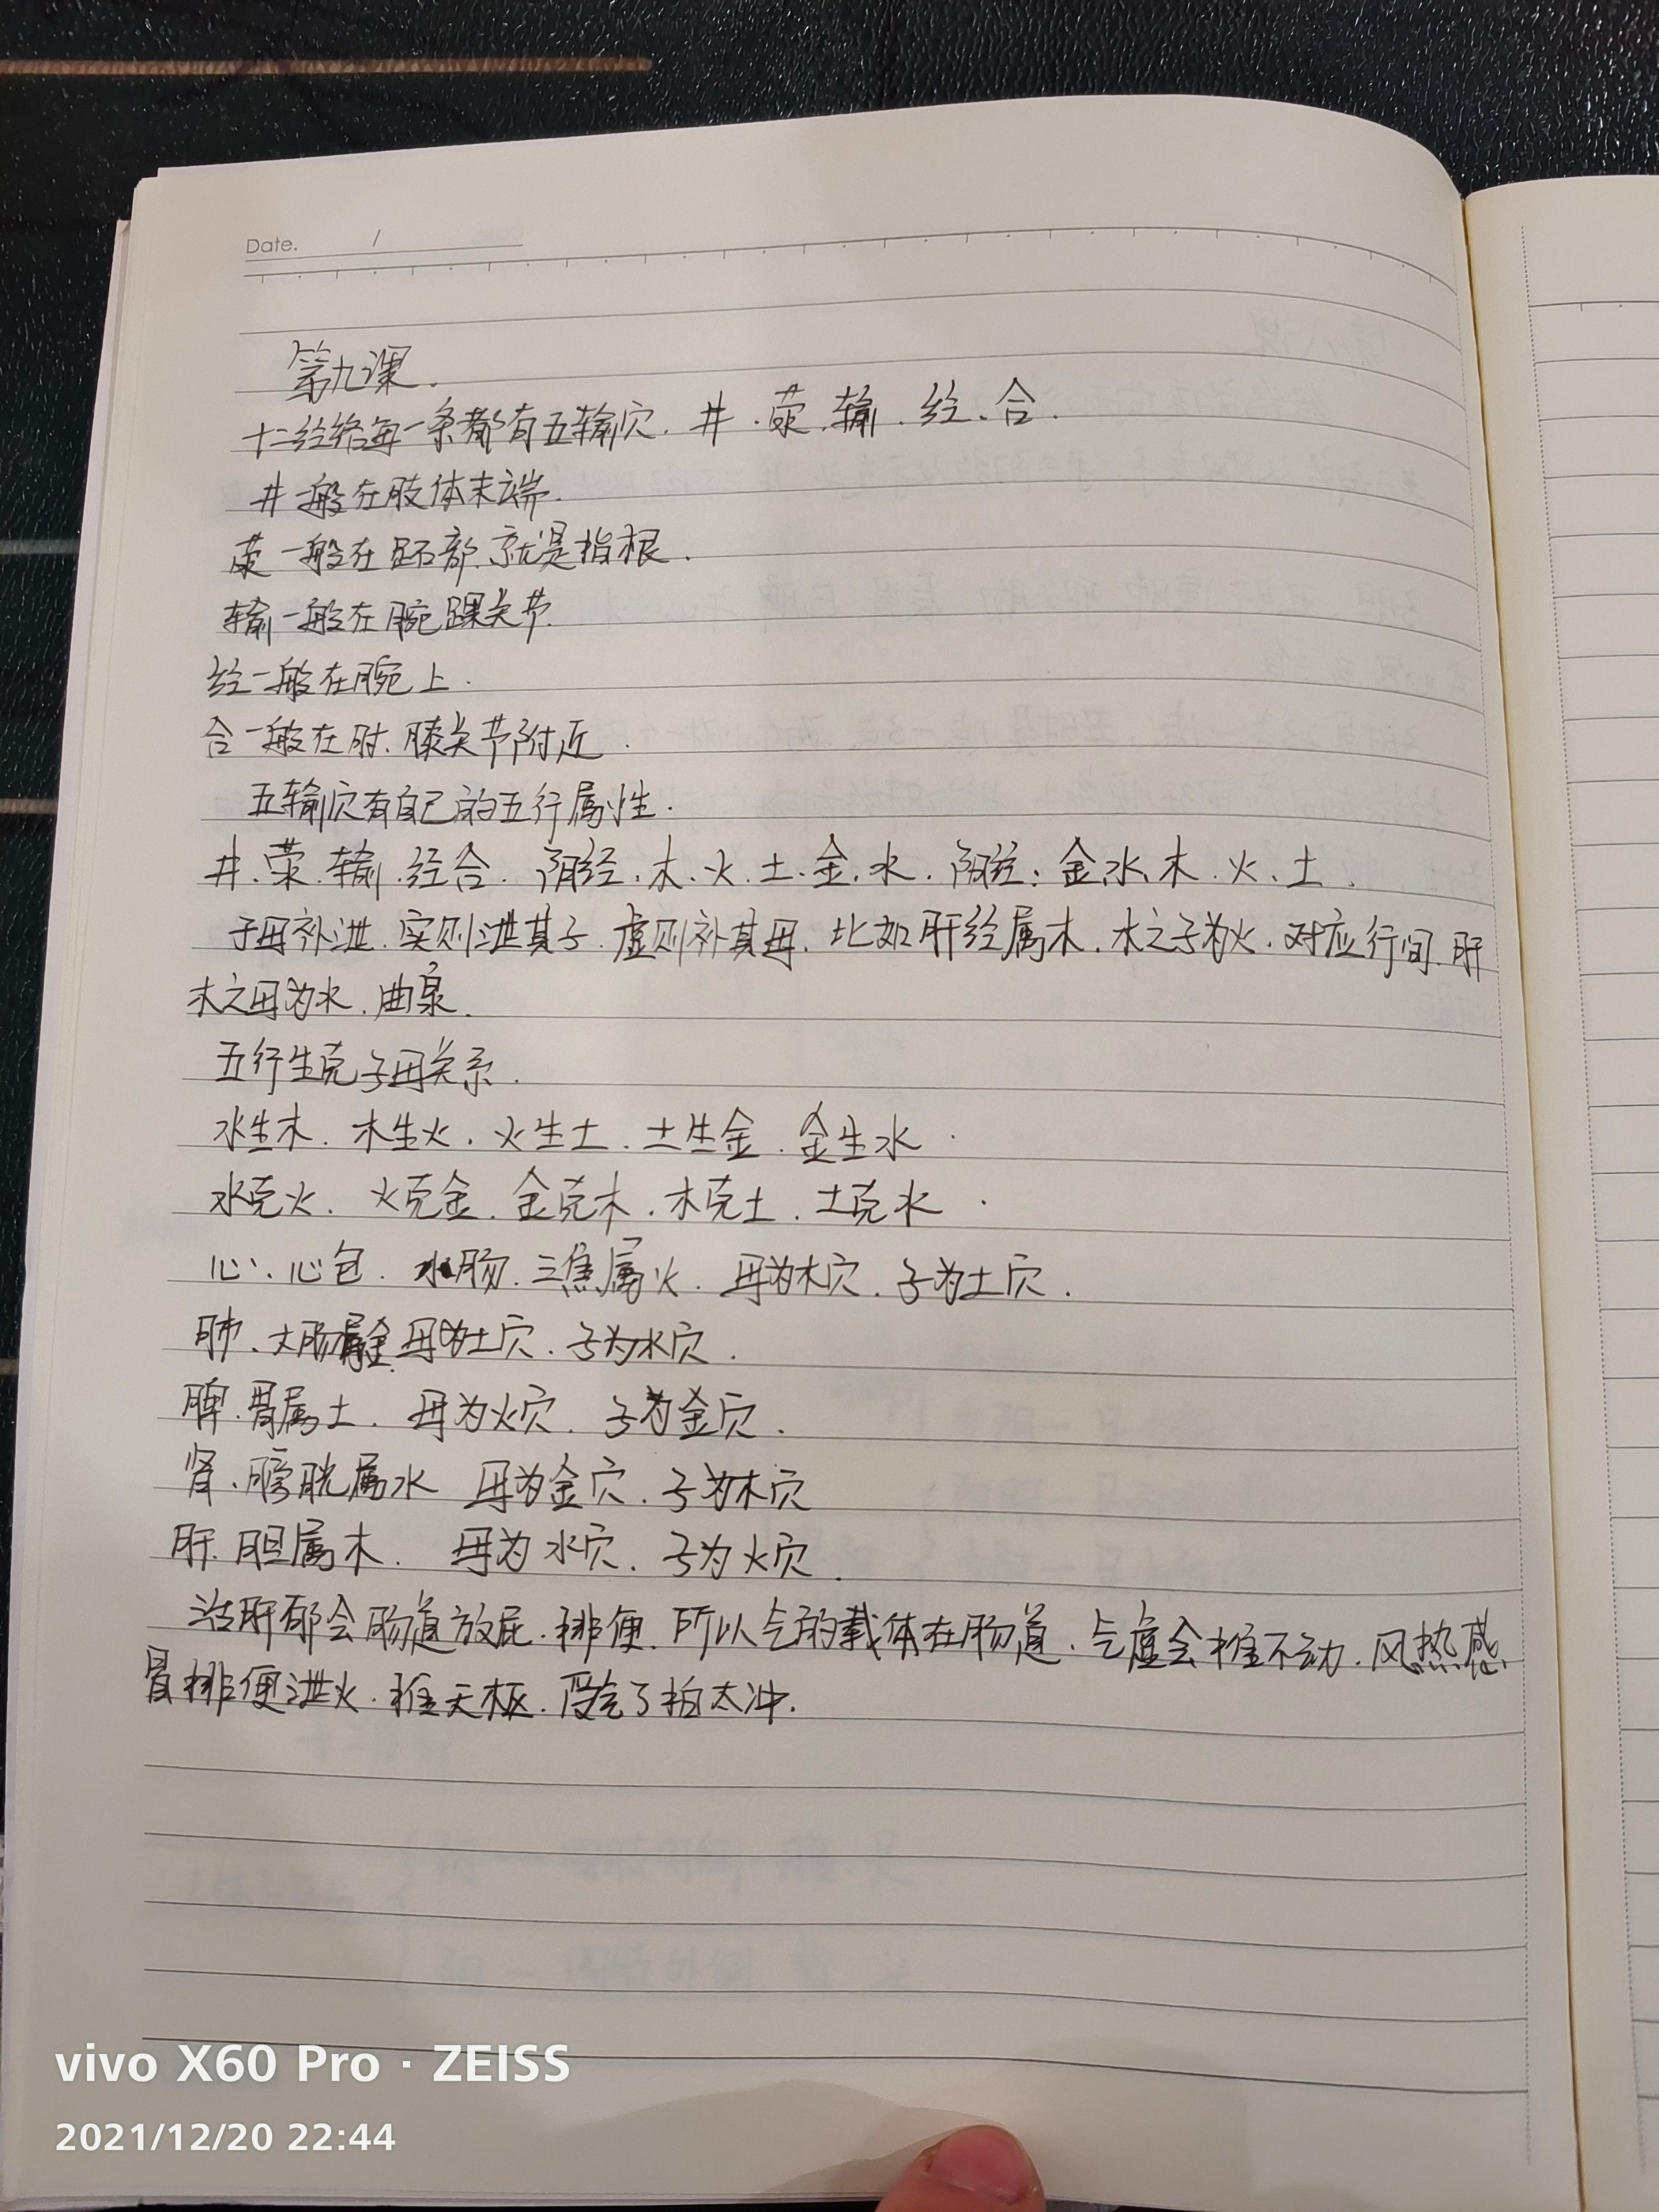 Date. /
第九课.
十二经络每一条都有五输穴. 井.荥.输.经.合.
井一般在肢体末端.
荥一般在跖部.就是指根.
输一般在腕踝关节.
经一般在腕上.
合一般在肘.膝关节附近.
五输穴有自己的五行属性.
井.荥.输.经合. 阴经.木.火.土.金.水. 阳经:金.水.木.火.土.
子母补泄.实则泄其子.虚则补其母.比如肝经属木.木之子为火.对应行间.肝
木之母为水.曲泉.
五行生克子母关系.
水生木.木生火.火生土.土生金.金生水.
水克火.火克金.金克木.木克土.土克水.
心.心包.小肠.三焦属火. 母为木穴.子为土穴.
肺.大肠属金母为土穴.子为水穴.
脾.胃属土. 母为火穴. 子为金穴.
肾.膀胱属水 母为金穴.子为木穴
肝.胆属木. 母为水穴.子为火穴.
治肝郁会肠道放屁.排便.所以气的载体在肠道.气虚会推不动.风热感
冒排便泄火.推天枢.受气了拍太冲.
vivo X60 Pro · ZEISS
2021/12/20 22:44